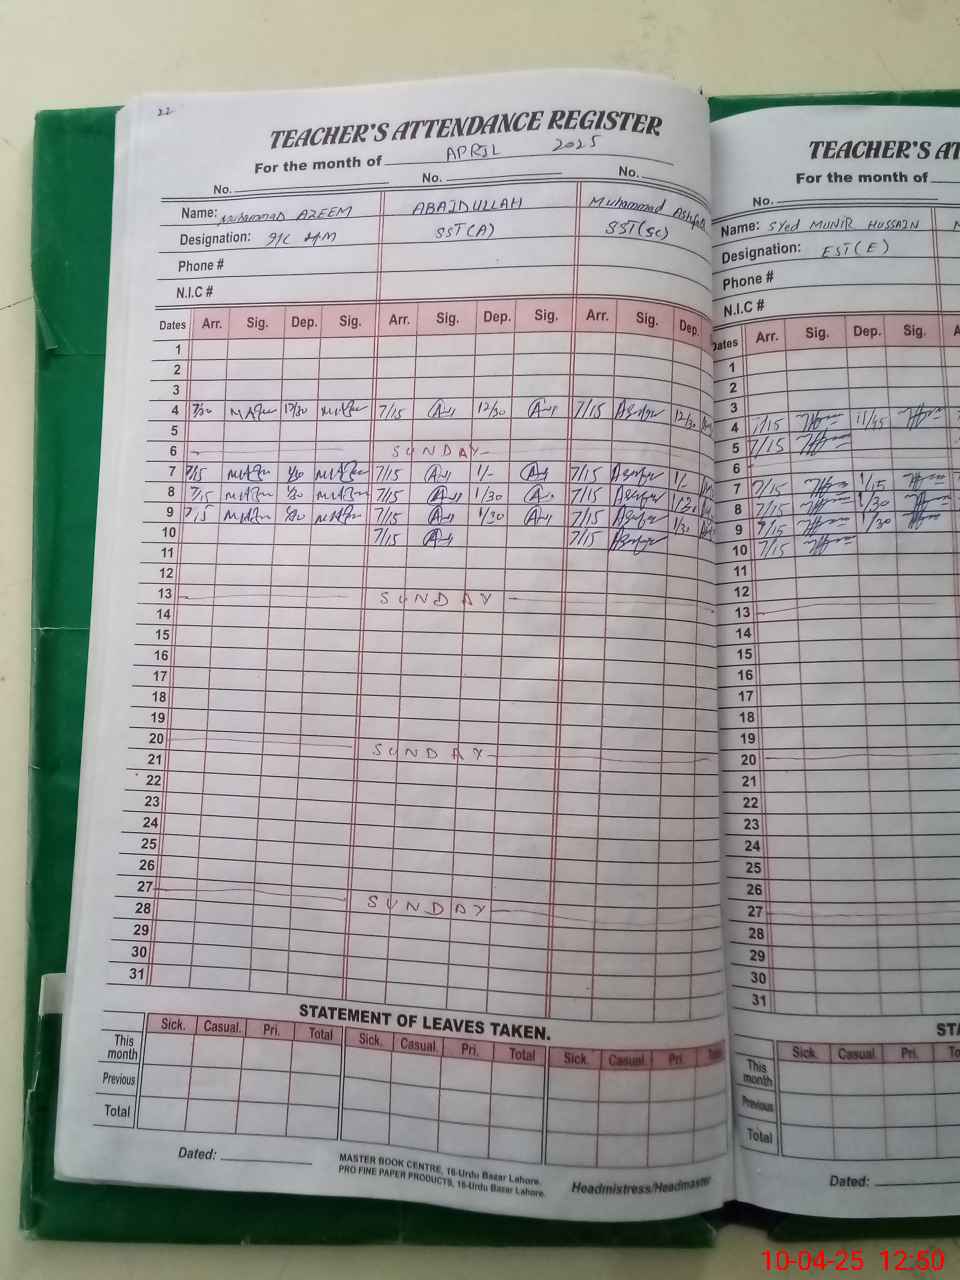 22
TEACHER'S ATTENDANCE REGISTER
For the month of APRIL 2025
No. No. No.
Name: Muhammad AZEEM ABAIDULLAH Muhammad
Designation: I/C H/M SST(A) SST(SC)
Phone #
N.I.C #
Dates Arr. Sig. Dep. Sig. Arr. Sig. Dep. Sig. Arr. Sig. Dep.
1
2
3
4 7/30 12/30 7/15 12/30 7/15 12/30
5
6 SUNDAY
7 7/15 7/15 1/- 7/15 1/-
8 7/15 1/30 7/15 1/30 7/15 1/30
9 7/15 1/30 7/15 1/30 7/15 1/30
10 7/15 7/15
11
12
13 SUNDAY
14
15
16
17
18
19
20 SUNDAY
21
22
23
24
25
26
27 SUNDAY
28
29
30
31
STATEMENT OF LEAVES TAKEN.
Sick. Casual. Pri. Total Sick. Casual. Pri. Total Sick. Casual. Pri. Total
This month
Previous
Total
Dated:
MASTER BOOK CENTRE, 16-Urdu Bazar Lahore.
PRO FINE PAPER PRODUCTS, 16-Urdu Bazar Lahore.
Headmistress/Headmaster
TEACHER'S AT
For the month of
No.
Name: Syed MUNIR HUSSAIN
Designation: EST(E)
Phone #
N.I.C #
Dates Arr. Sig. Dep. Sig.
1
2
3
4 7/15 11/45
5 7/15
6
7 7/15 1/15
8 7/15 1/30
9 7/15 1/30
10 7/15
11
12
13
14
15
16
17
18
19
20
21
22
23
24
25
26
27
28
29
30
31
STA
Sick. Casual. Pri. To
This month
Previous
Total
Dated:
10-04-25 12:50